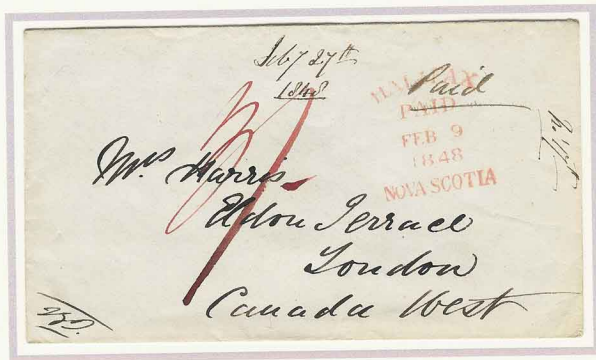 Feby 27th
1848
Paid
HALIFAX
PAID
FEB 9
1848
NOVA SCOTIA
Mrs Harris
Eldon Terrace
London
Canada West